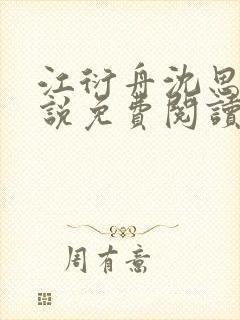 江衍舟沈思
說免費閱讀
周有意